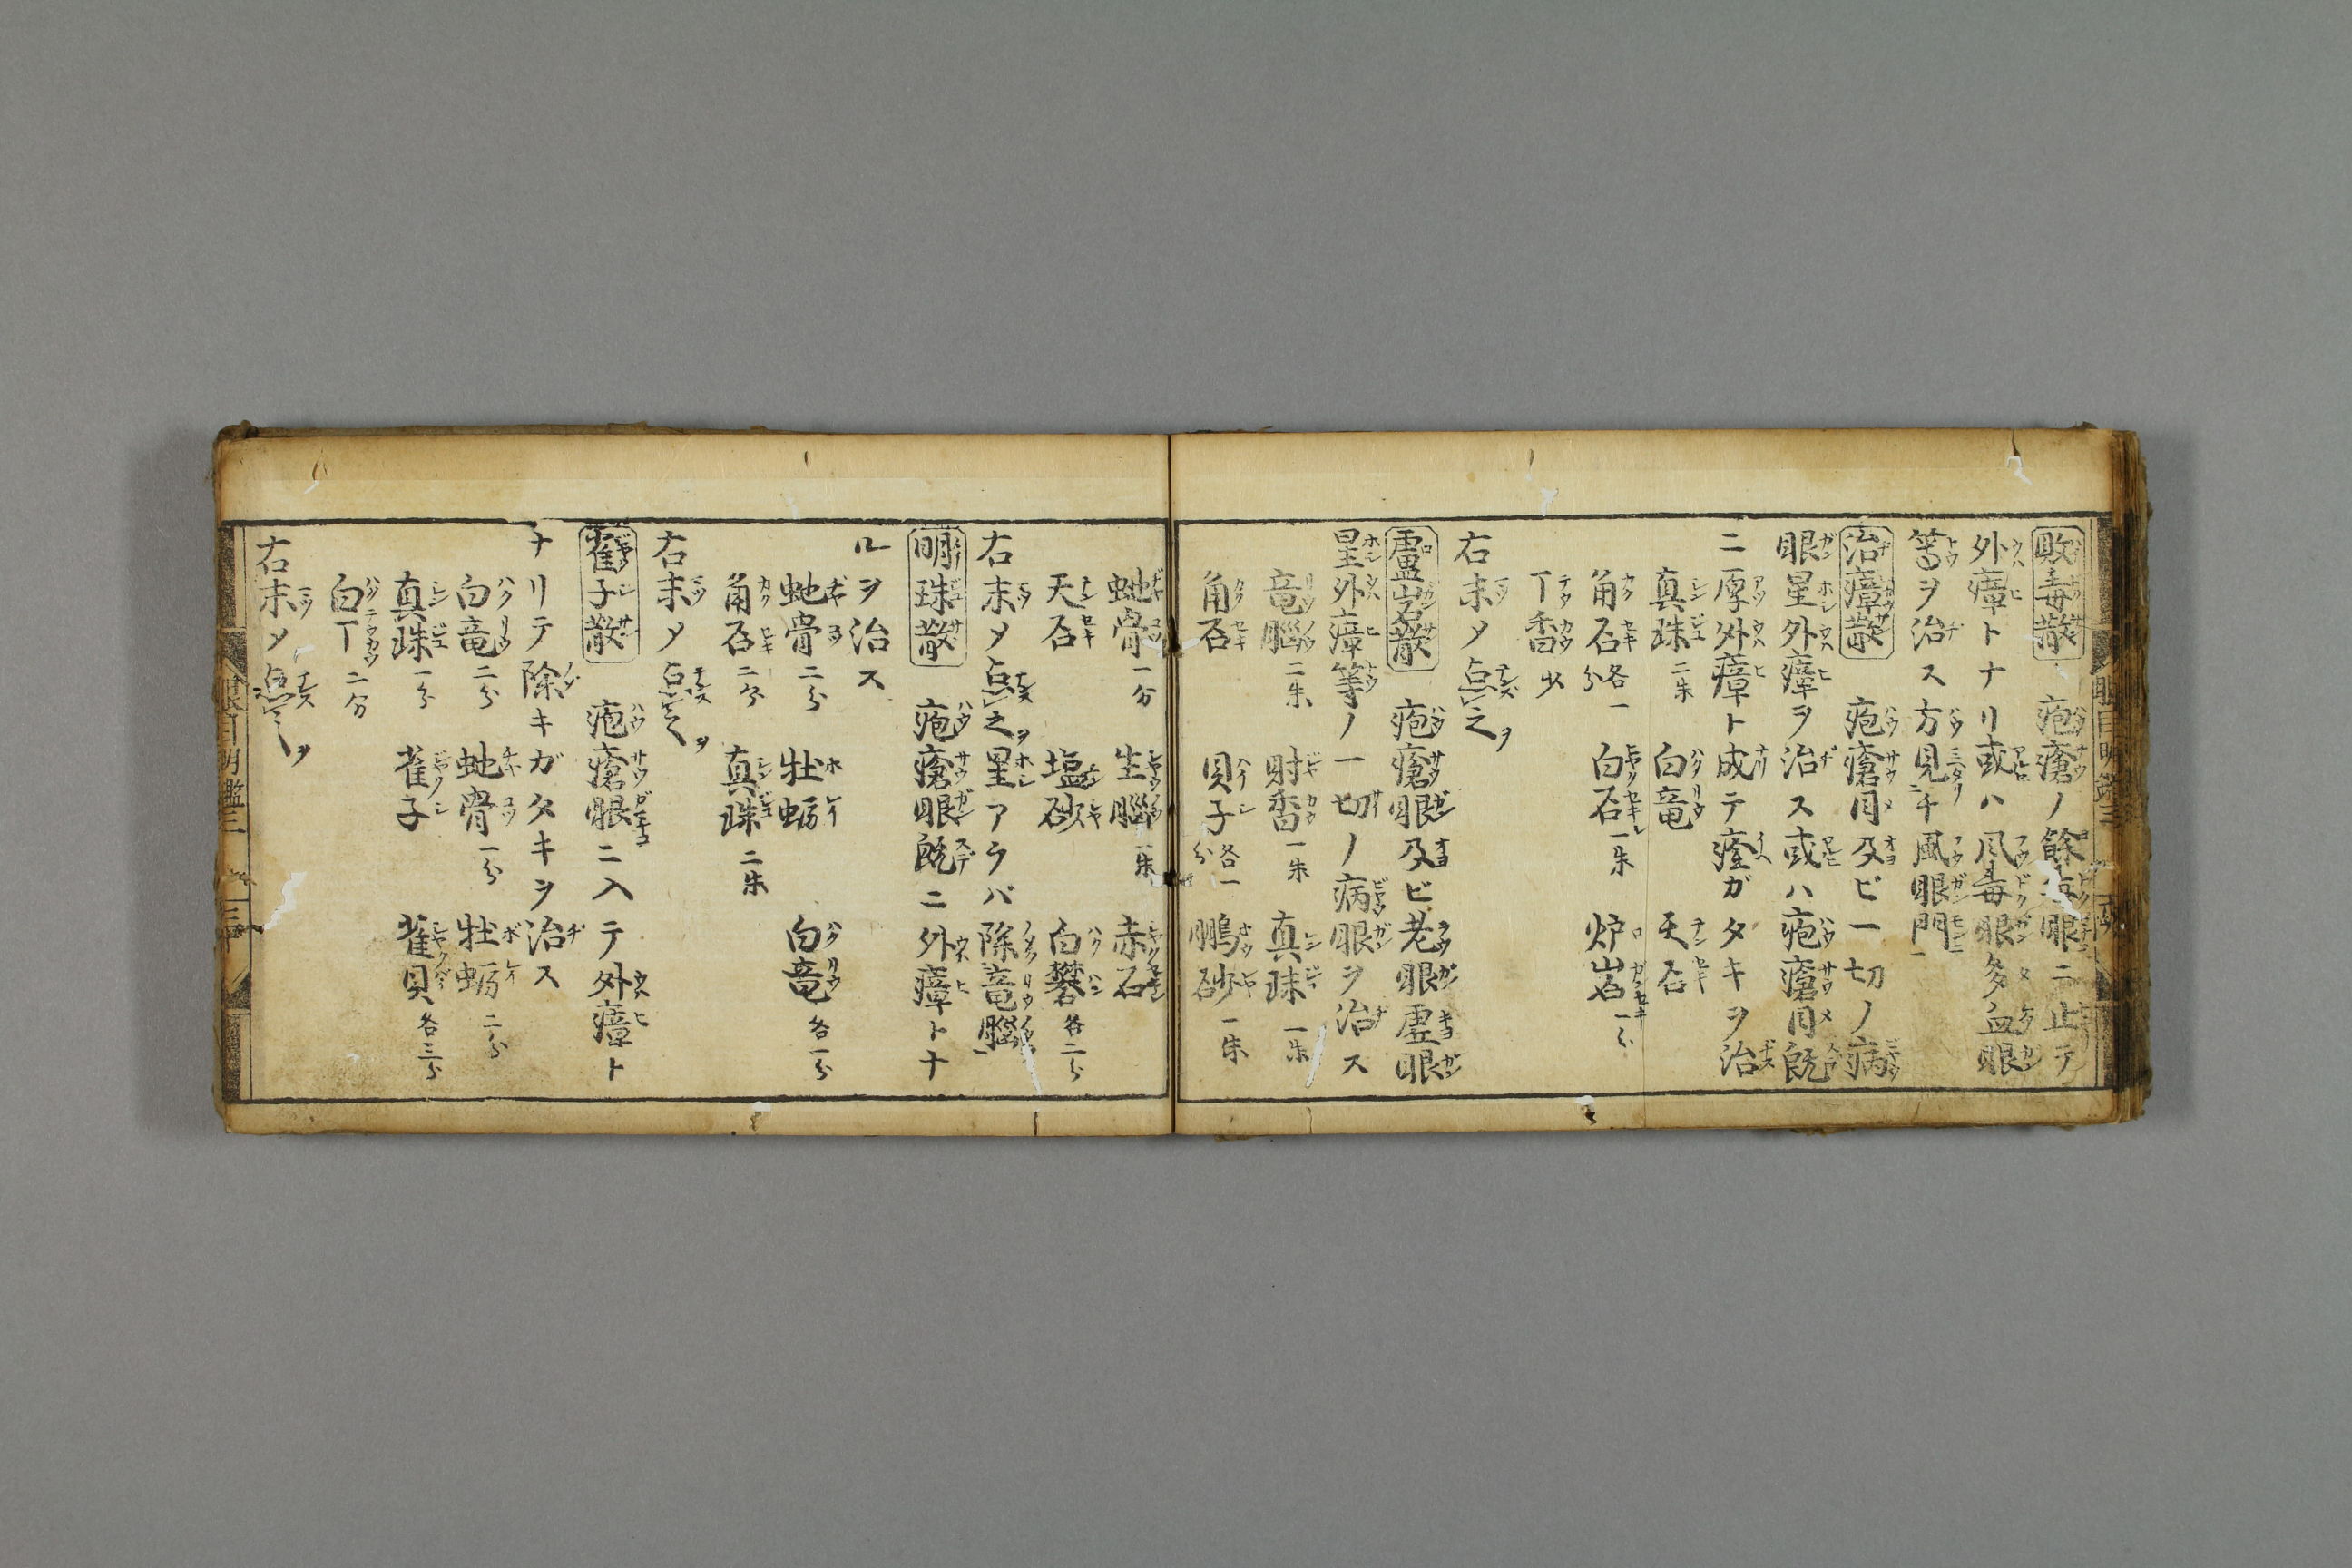 敗毒散 疱瘡ノ餘毒眼ニ止テ
外瘴トナリ或ハ風毒眼多血眼
等ヲ治ス方見于風眼門
治瘴散 疱瘡目及ビ一切ノ病
眼星外瘴ヲ治ス或ハ疱瘡目既
ニ厚外瘴ト成テ痊ガタキヲ治
真珠二朱 白竜 天石
角石各一分 白石一朱 炉岩一分
丁香少
右末〆点之ヲ
盧岩散 疱瘡眼及ビ老眼虚眼
星外瘴等ノ一切ノ病眼ヲ治ス
竜脳二朱 射香一朱 真珠一朱
角石 貝子各一分 鵬砂一朱
虵骨一分 生脳一朱 赤石
天石 塩砂 白礬各二分
右末〆点之ヲ星アラバ除竜脳
明珠散 疱瘡眼既ニ外瘴トナ
ルヲ治ス
虵骨二分 牡蛎 白竜各一分
角石二分 真珠二朱
右末〆点之ヲ
雀子散 疱瘡眼ニ入テ外瘴ト
ナリテ除キガタキヲ治ス
白竜二分 虵骨一分 牡蛎二分
真珠一分 雀子 雀貝各三分
白丁二分
右末〆点之ヲ
眼目明鑑三